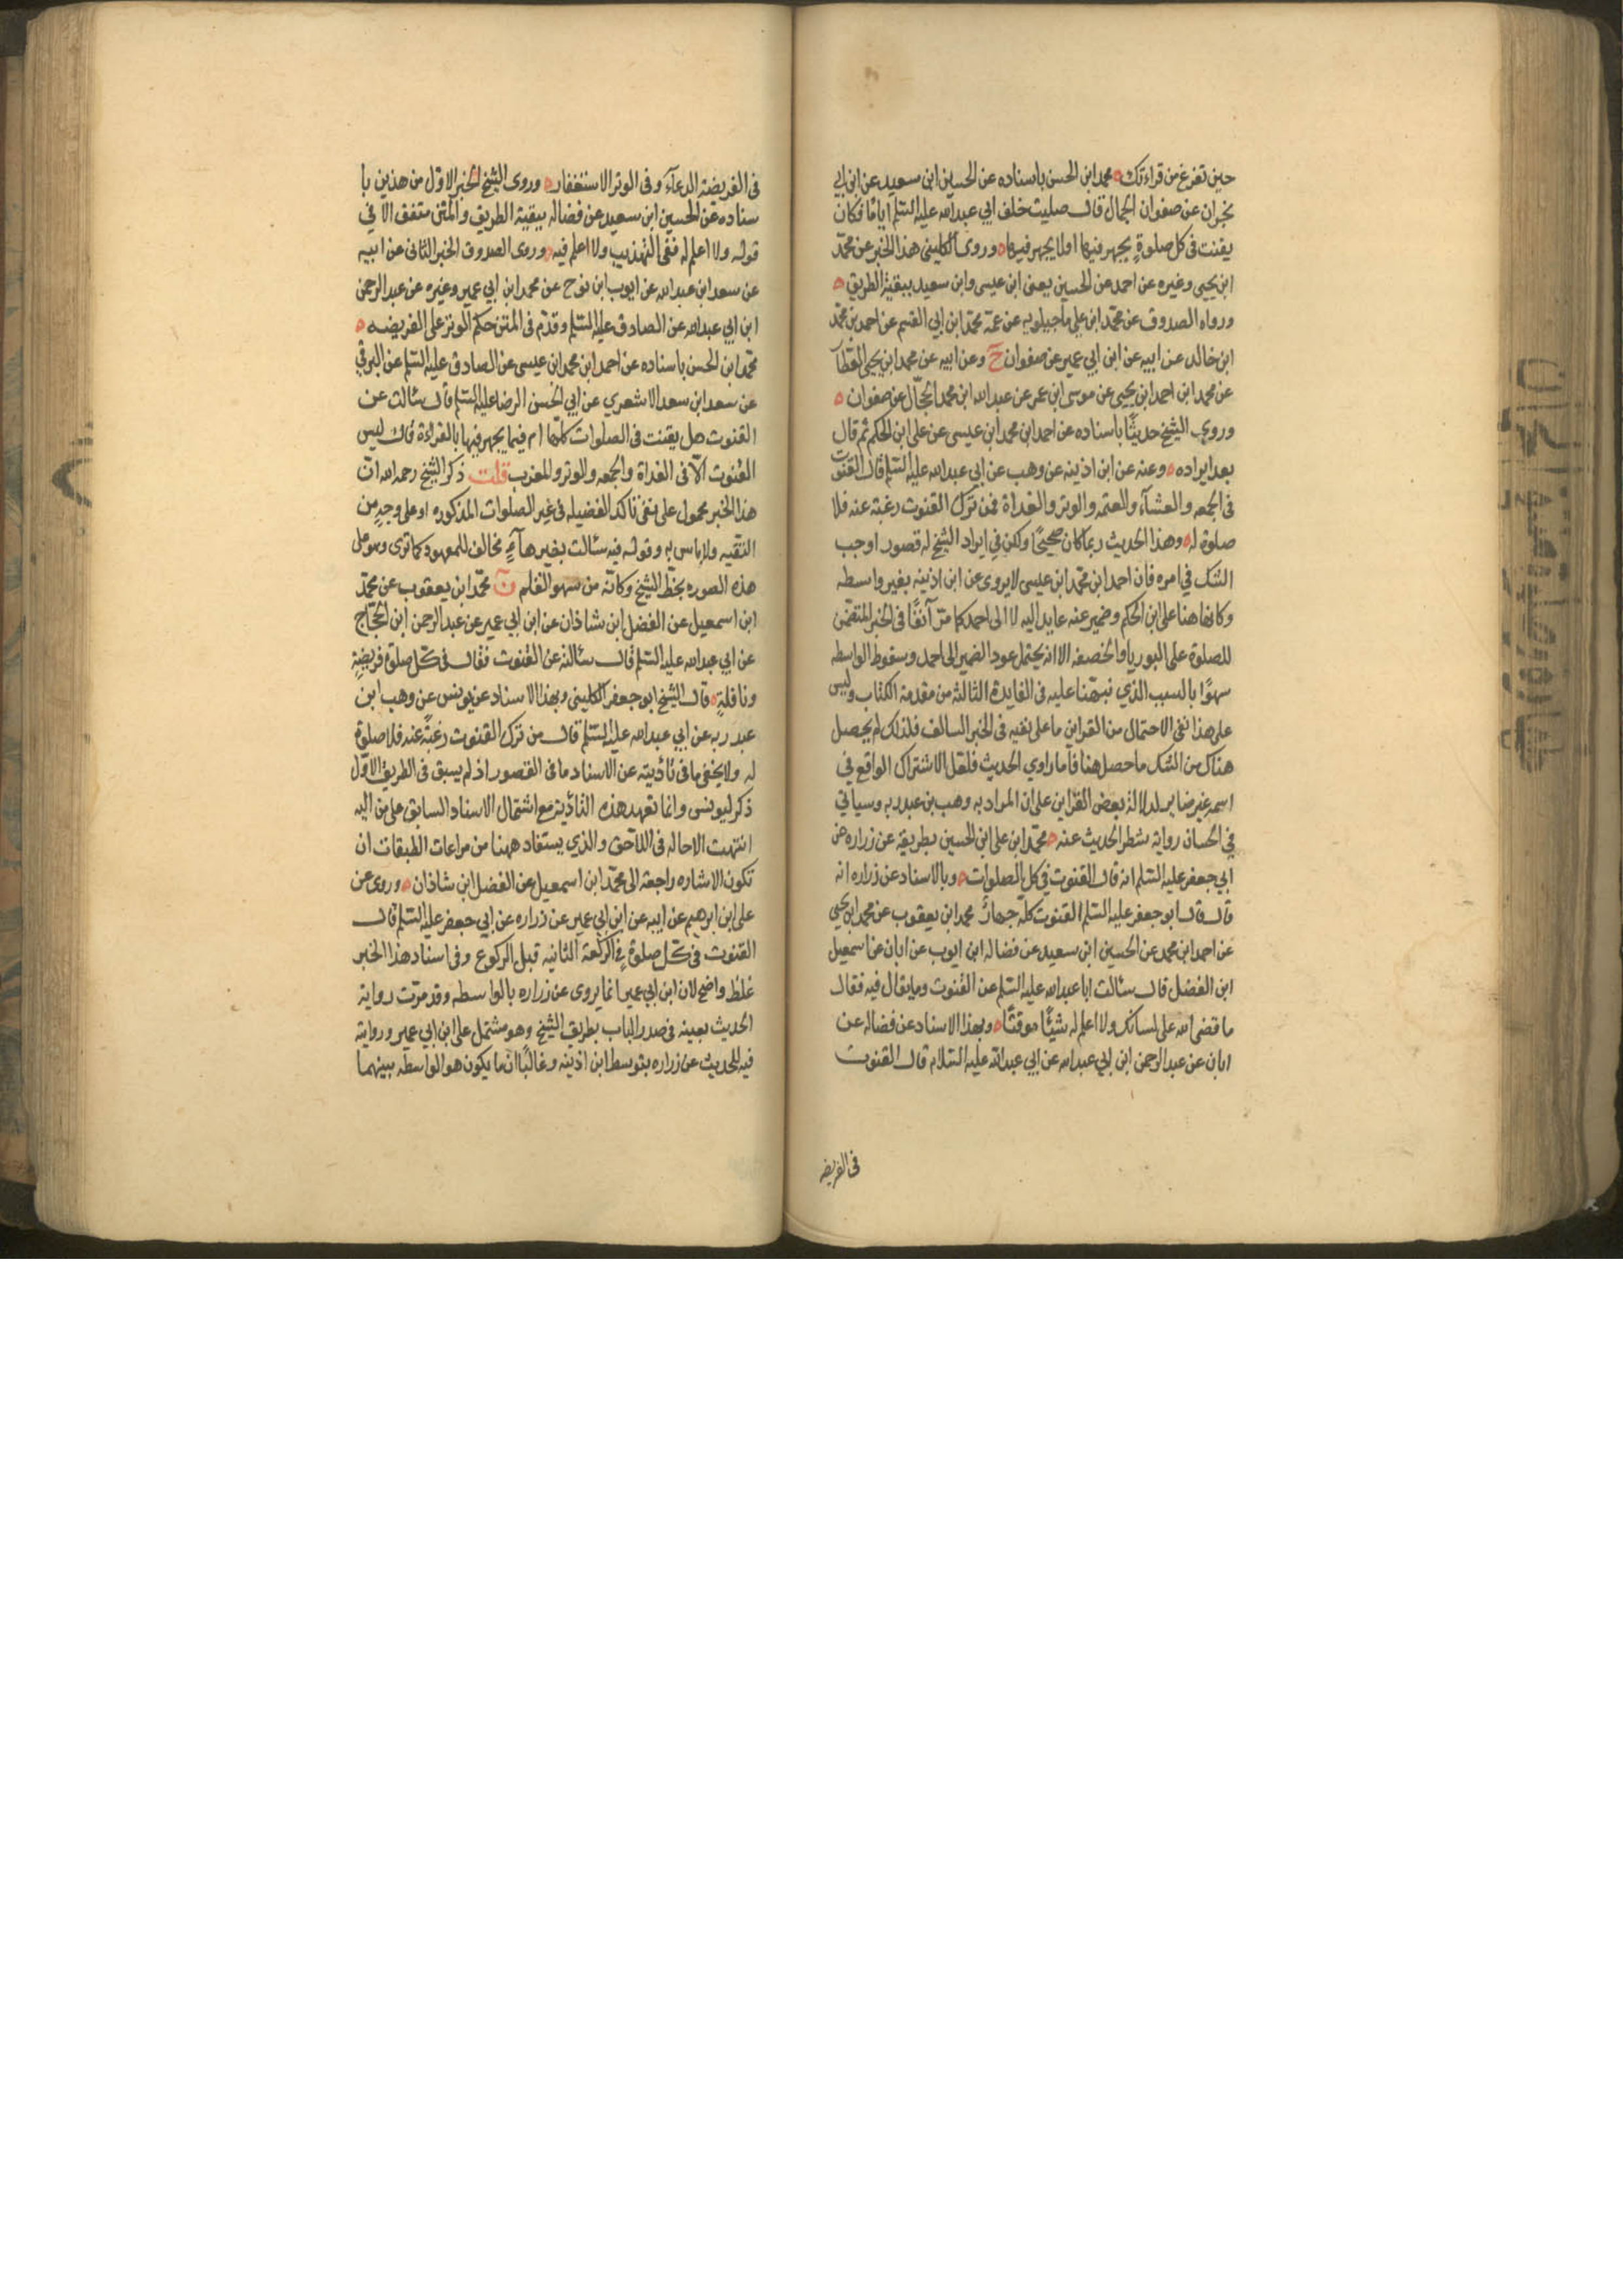 حين تفرغ من قراءتك محمد ابن الحسن باسناده عن الحسين ابن سعيد عن ابن ابي
نجران عن صفوان الجمال قال صليت خلف ابي عبدالله عليه السلم اياما فكان
يقنت في كل صلوة يجهر فيها او لا يجهر فيها وروى الكليني هذا الخبر عن محمد
ابن يحيى وغيره عن احمد عن الحسين يعنى ابن عيسى وابن سعيد ببقية الطريق
ورواه الصدوق عن محمد ابن علي ماجيلويه عن عمه محمد ابن ابي القسم عن احمد بن محمد
ابن خالد عن ابيه عن ابن ابي عمير عن صفوان ح وعن ابيه عن محمد ابن يحيى العطار
عن محمد ابن احمد ابن يحيى عن موسى ابن عمر عن عبدالله ابن محمد الحجال عن صفوان
وروى الشيخ حديثا باسناده عن احمد ابن محمد ابن عيسى عن علي ابن الحكم ثم قال
بعد ايراده وعنه عن ابن اذينه عن وهب عن ابي عبدالله عليه السلم قال القنوت
في الجمعه والعشآء والعتمه والوتر والغداة فمن ترك القنوت رغبة عنه فلا
صلوة له وهذا الحديث ربما كان صحيحا ولكن في ايراد الشيخ له قصور اوجب
الشك في امره فان احمد ابن محمد ابن عيسى لا يروى عن ابن اذينه بغير واسطه
وكانها هنا علي ابن الحكم وضمير عنه عايد اليه لا الى احمد كما مر آنفا في الخبر المتضمن
للصلوة على البوريا والخصفه الا انه يحتمل عود الضمير الى احمد وسقوط الواسطه
سهوا بالسبب الذي نبهنا عليه في الفايدة الثالثة من مقدمة الكتاب وليس
على هذا نفي الاحتمال من القراين ما على نفيه في الخبر السالف فلذلك لم يحصل
هناك من الشك ما حصل هنا فاما راوي الحديث فلعل الاشتراك الواقع في
اسمه غير ضاير لدلالة بعض القراين على ان المراد به وهب بن عبد ربه وسياتي
في الحسان رواية شطر الحديث عنه محمد ابن علي ابن الحسين بطريقه عن زراره عن
ابي جعفر عليه السلم انه قال القنوت في كل الصلوات وبالاسناد عن زراره انه
قال قال ابو جعفر عليه السلم القنوت كله جهار محمد ابن يعقوب عن محمد ابن يحيى
عن احمد ابن محمد عن الحسين ابن سعيد عن فضاله ابن ايوب عن ابان عن اسمعيل
ابن الفضل قال سئالت ابا عبدالله عليه السلم عن القنوت وما يقال فيه فقال
ما قضى الله على لسانك ولا اعلم له شيئا موقتا وبهذا الاسناد عن فضاله عن
ابان عن عبد الرحمن ابن ابي عبدالله عن ابي عبدالله عليه السلام قال القنوت
في الفريضه
في الفريضة الدعآء وفي الوتر الاستغفار وروى الشيخ الخبر الاول من هذين با
سناده عن الحسين ابن سعيد عن فضاله ببقية الطريق والمتن متفق الا في
قوله ولا اعلم له ففي التهذيب ولا اعلم فيه وروى الصدوق الخبر الثاني عن ابيه
عن سعد ابن عبدالله عن ايوب ابن نوح عن محمد ابن ابي عمير وغيره عن عبد الرحمن
ابن ابي عبدالله عن الصادق عليه السلم وقدم في المتن حكم الوتر على الفريضه
محمد ابن الحسن باسناده عن احمد ابن محمد ابن عيسى عن الصادق عليه السلم عن البرقي
عن سعد ابن سعد الاشعري عن ابي الحسن الرضا عليه السلم قال سئالت عن
القنوت هل يقنت في الصلوات كلها ام فيما يجهر فيها بالقراءة قال ليس
القنوت الا في الغداة والجمعه والوتر والمغرب قلت ذكر الشيخ رحمه الله ان
هذا الخبر محمول على نفي تاكد الفضيله في غير الصلوات المذكوره او على وجه من
التقيه ولا باس به وقوله فيه سئالت بغير هآء مخالف للمعهود كما ترى وهو على
هذه الصوره بخط الشيخ وكانه من سهو القلم ن محمد ابن يعقوب عن محمد
ابن اسمعيل عن الفضل ابن شاذان عن ابن ابي عمير عن عبد الرحمن ابن الحجاج
عن ابي عبدالله عليه السلم قال سئالته عن القنوت فقال في كل صلوة فريضة
ونافلة قال الشيخ ابو جعفر الكليني وبهذا الاسناد عن يونس عن وهب ابن
عبد ربه عن ابي عبدالله عليه السلم قال من ترك القنوت رغبة عنه فلا صلوة
له ولا يخفى ما في تأديته عن الاسناد ما في القصور اذ لم يسبق في الطريق الاول
ذكر ليونس وانما تعهد هذه التأدية مع اشتمال الاسناد السابق على من اليه
انتهت الاحاله في اللاحق والذي يستفاد ههنا من مراعات الطبقات ان
تكون الاشاره راجعة الى محمد ابن اسمعيل عن الفضل ابن شاذان وروى عن
علي ابن ابرهيم عن ابيه عن ابن ابي عمير عن زراره عن ابي جعفر عليه السلم قال
القنوت في كل صلوة في الركعة الثانيه قبل الركوع وفي اسناد هذا الخبر
غلط واضح لان ابن ابي عمير انما يروى عن زراره بالواسطه وقد مرت رواية
الحديث بعينه في صدر الباب بطريق الشيخ وهو مشتمل على ابن ابي عمير ورواية
فيه للحديث عن زراره بتوسط ابن اذينه وغالبا ان ما يكون هو الواسطه بينهما